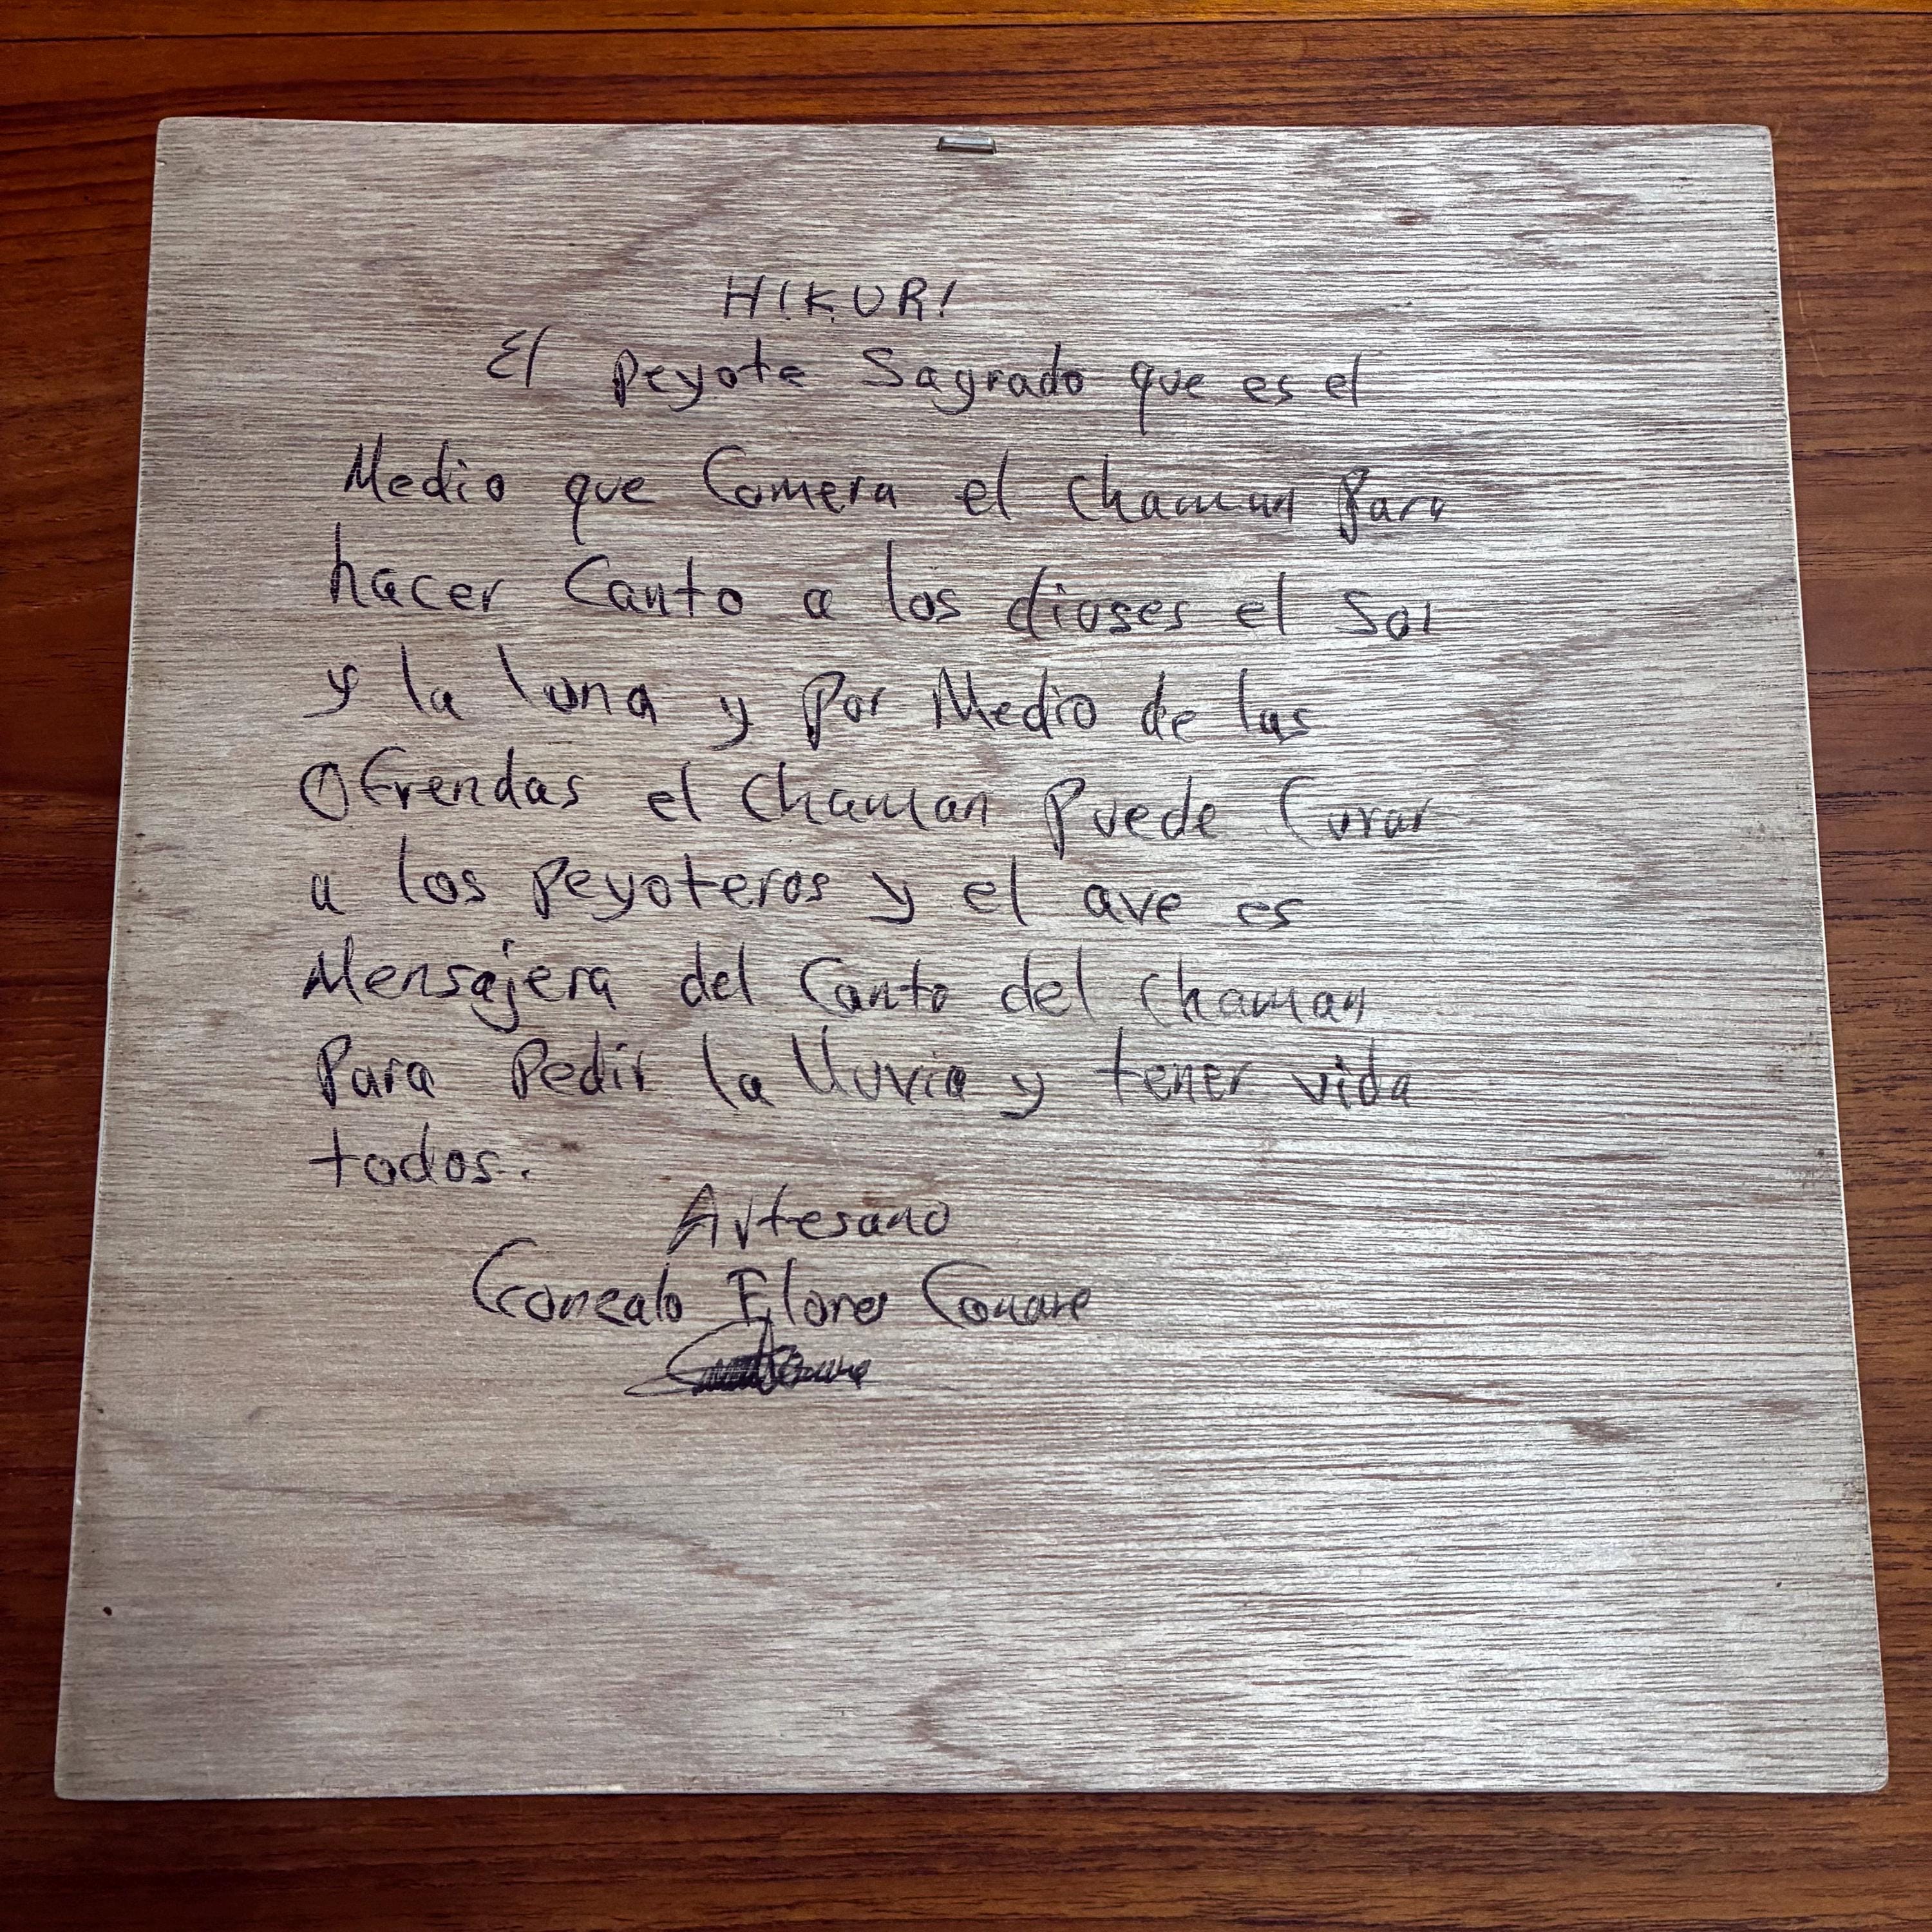 HIKURI
El peyote Sagrado que es el
Medio que Comera el chaman Para
hacer Canto a los dioses el Sol
y la luna y Por Medio de las
Ofrendas el Chaman Puede Curar
a los Peyoteros y el ave es
Mensajera del Canto del chaman
Para Pedir la lluvia y tener vida
todos.
Artesano
Gonzalo Flores